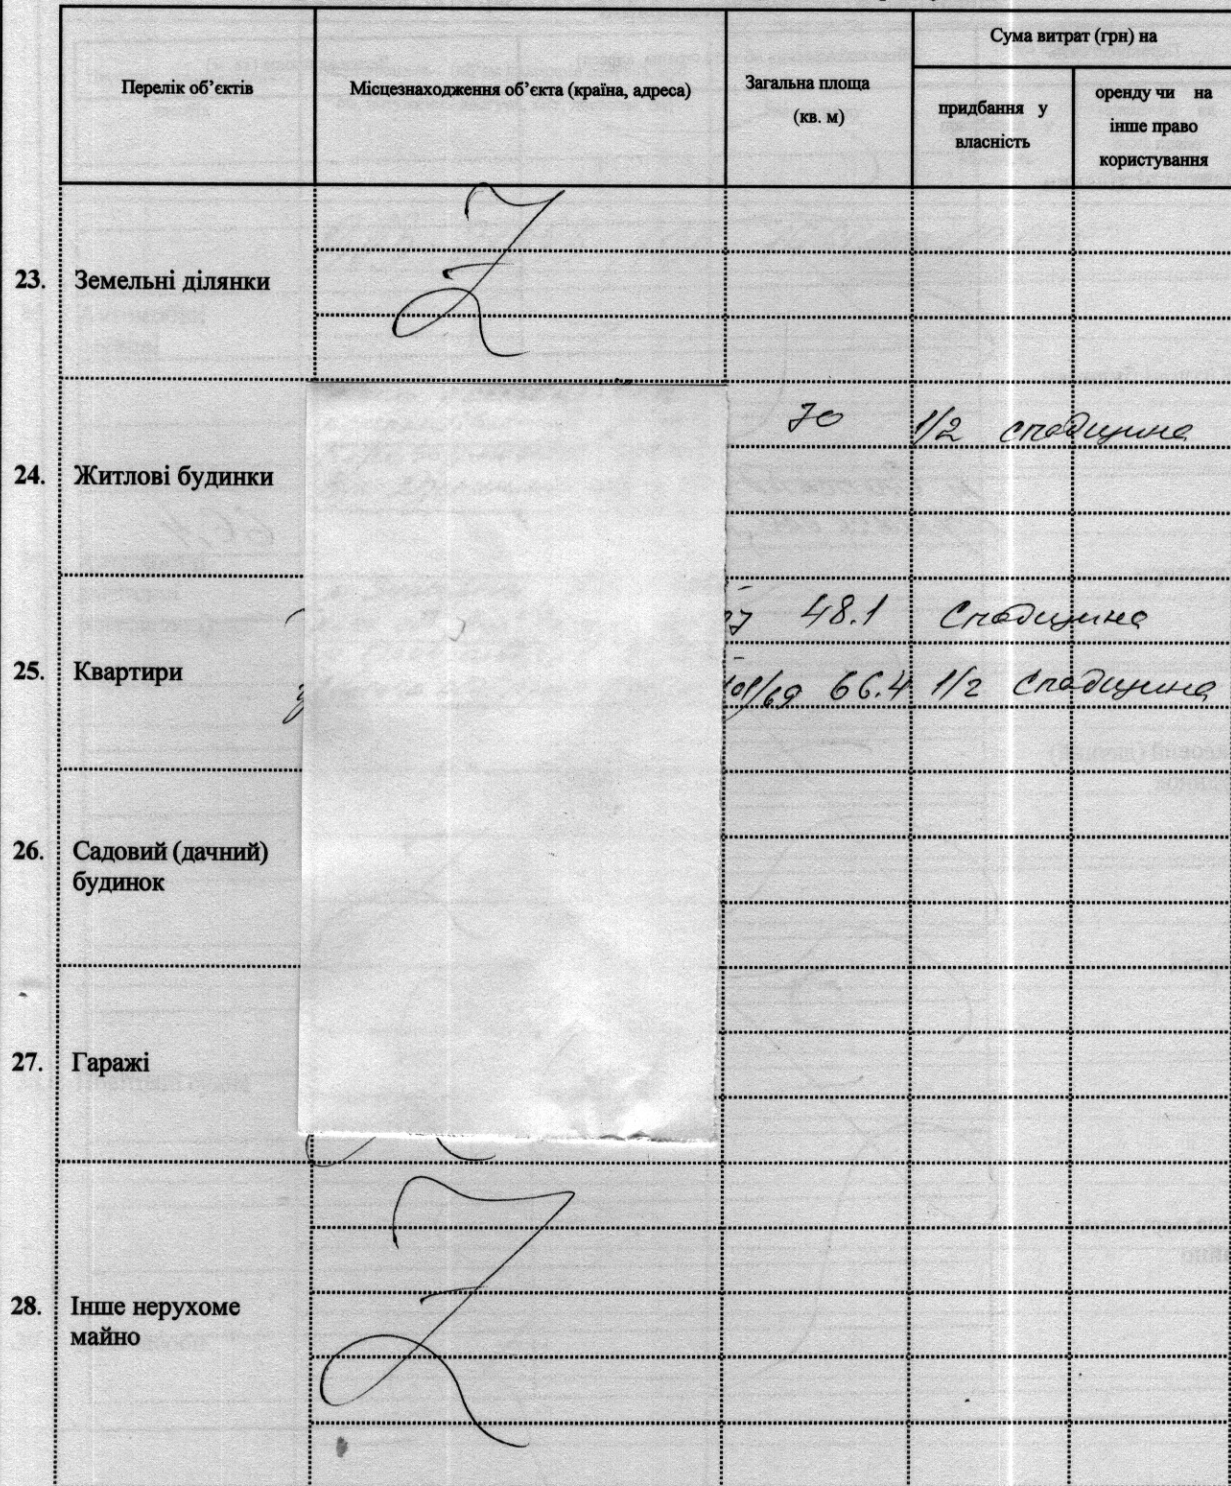 Сума витрат (грн) на
Перелік об’єктів
Місцезнаходження об’єкта (країна, адреса)
Загальна площа
(кв. м)
придбання у
власність
оренду чи на
інше право
користування
23. Земельні ділянки
Z
24. Житлові будинки
70 1/2 спадщина
25. Квартири
48.1 Спадщина
101/69 66.4 1/2 спадщина
26. Садовий (дачний)
будинок
27. Гаражі
28. Інше нерухоме
майно
Z